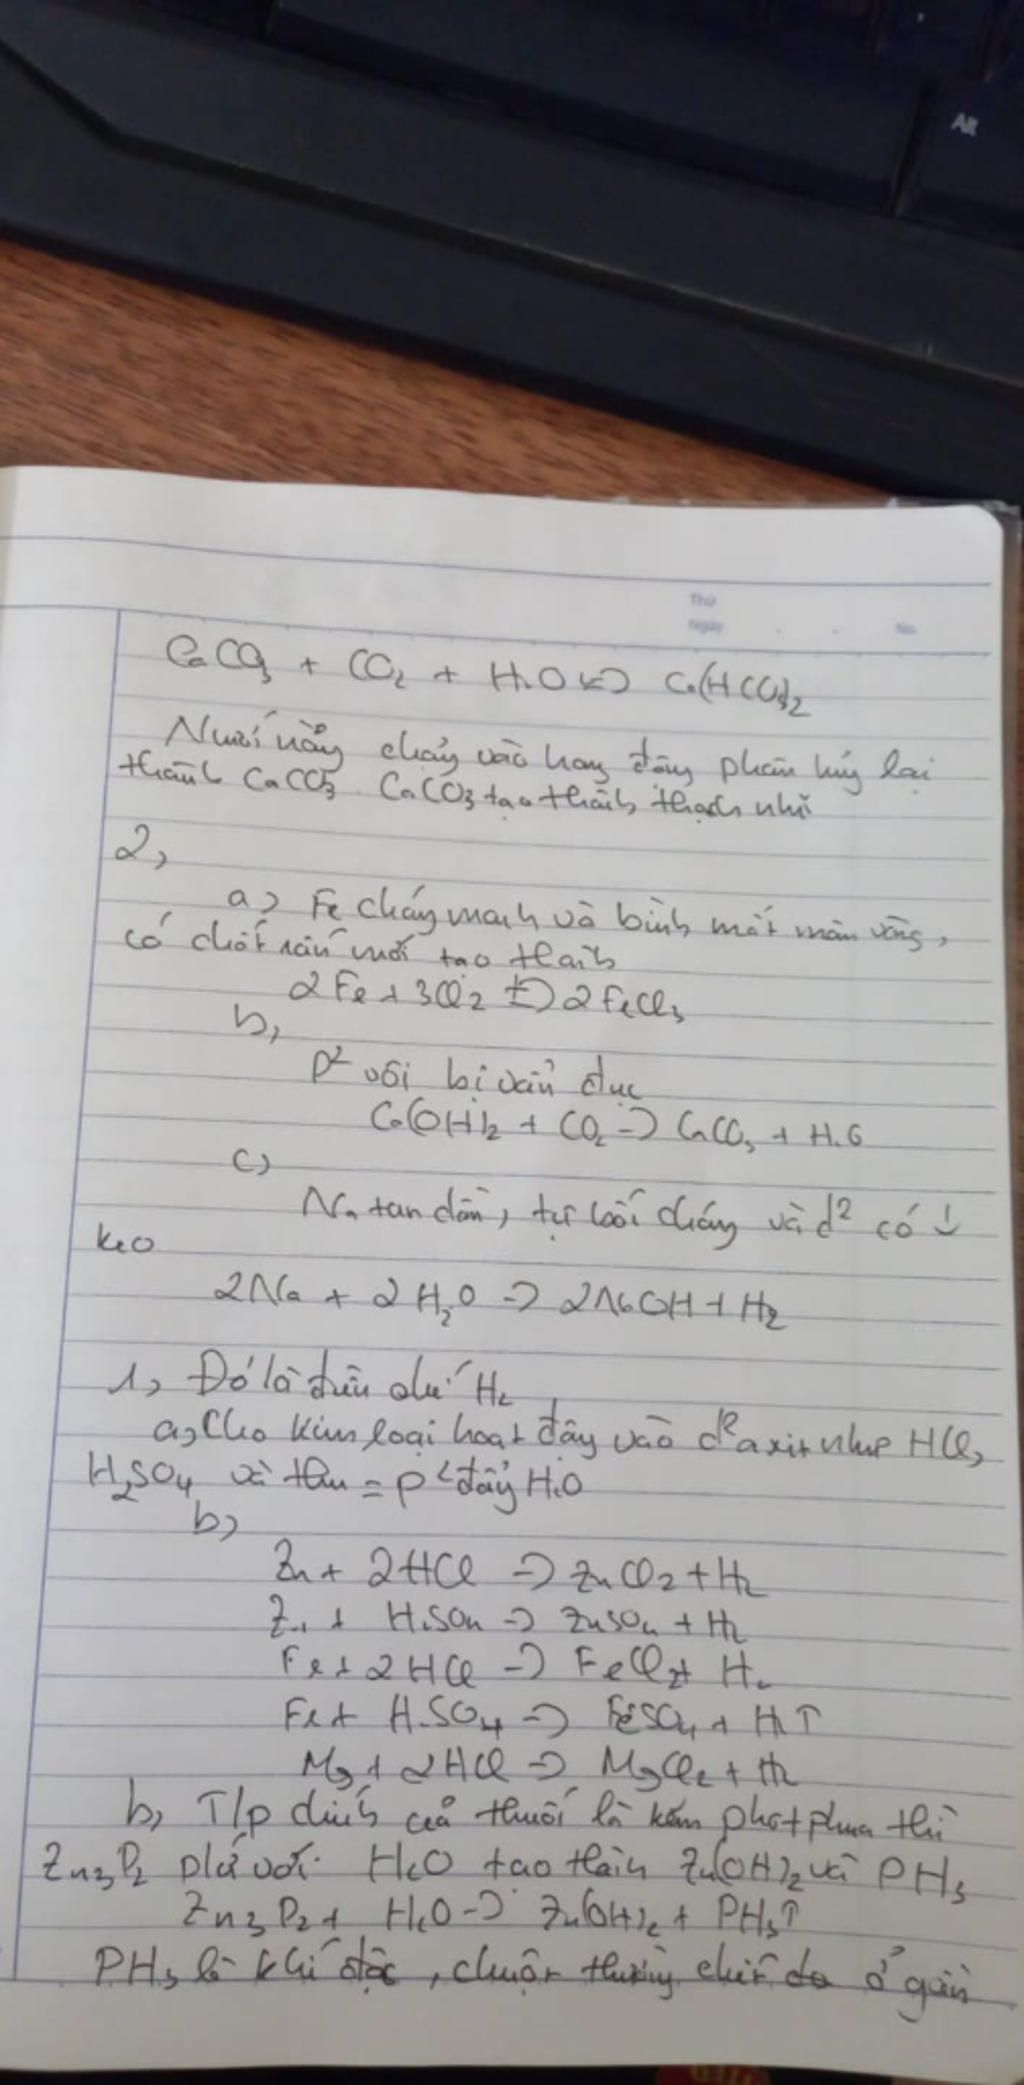 Alt
Thứ
Ngày No.
CaCO3 + CO2 + H2O <-> Ca(HCO3)2
Nước này chảy vào hang động phân hủy lại
thành CaCO3. CaCO3 tạo thành thạch nhũ
2,
a) Fe cháy mạnh và bình mất màu vàng,
có chất rắn mới tạo thành
2Fe + 3Cl2 -> 2FeCl3
b,
d² vôi bị vẩn đục
Ca(OH)2 + CO2 -> CaCO3 + H2O
c)
Na tan dần, tự bốc cháy và d² có ↓
keo
2Na + 2H2O -> 2NaOH + H2
1, Đó là điều chế H2
a, Cho kim loại hoạt động vào d² axit như HCl,
H2SO4 và thu = p² đẩy H2O
b)
Zn + 2HCl -> ZnCl2 + H2
Zn + H2SO4 -> ZnSO4 + H2
Fe + 2HCl -> FeCl2 + H2
Fe + H2SO4 -> FeSO4 + H2↑
Mg + 2HCl -> MgCl2 + H2
b, T/p chính của thuốc là kẽm photphua thì
Zn3P2 với H2O tạo thành Zn(OH)2 và PH3
Zn3P2 + H2O -> Zn(OH)2 + PH3↑
PH3 là khí độc, chuột thường chết ở gần